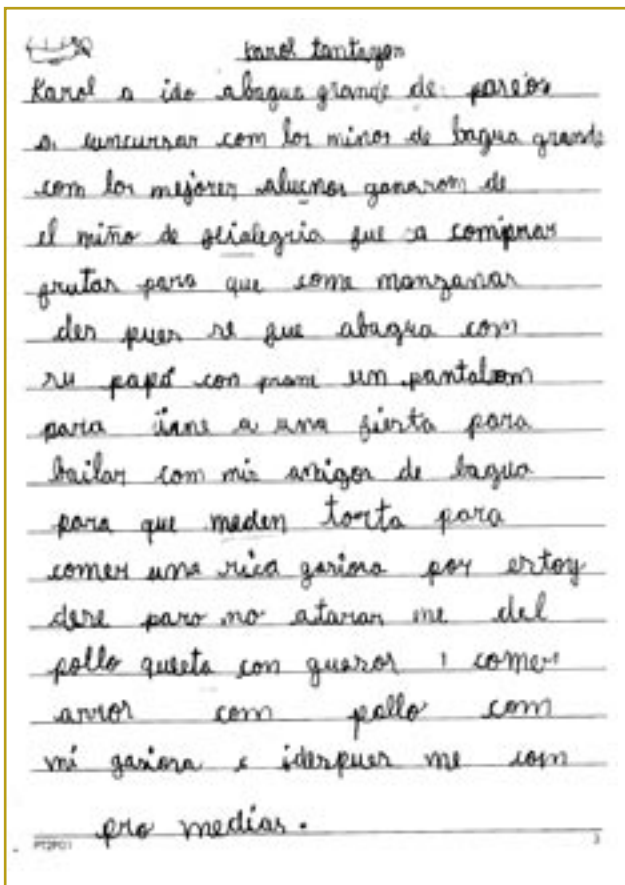 Karol tantayon
Karol a ido abagua grande de pareos
a cuncursar com los minos de bagua grande
com los mejores alucnos ganarom de
el miño de alialegria fue a comprar
frutas para que come manzanas
des pues se fue abagua com
su papá con prane un pantalom
para irne a una fiesta para
bailar com mis amigos de bagua
para que meden torta para
comer una rica gasiosa por estoy
dere paro no atarar me del
pollo quieta con guazos i comer
arros com pollo com
mi gasiosa e idespues me com
pro medias.
PT2P01 3